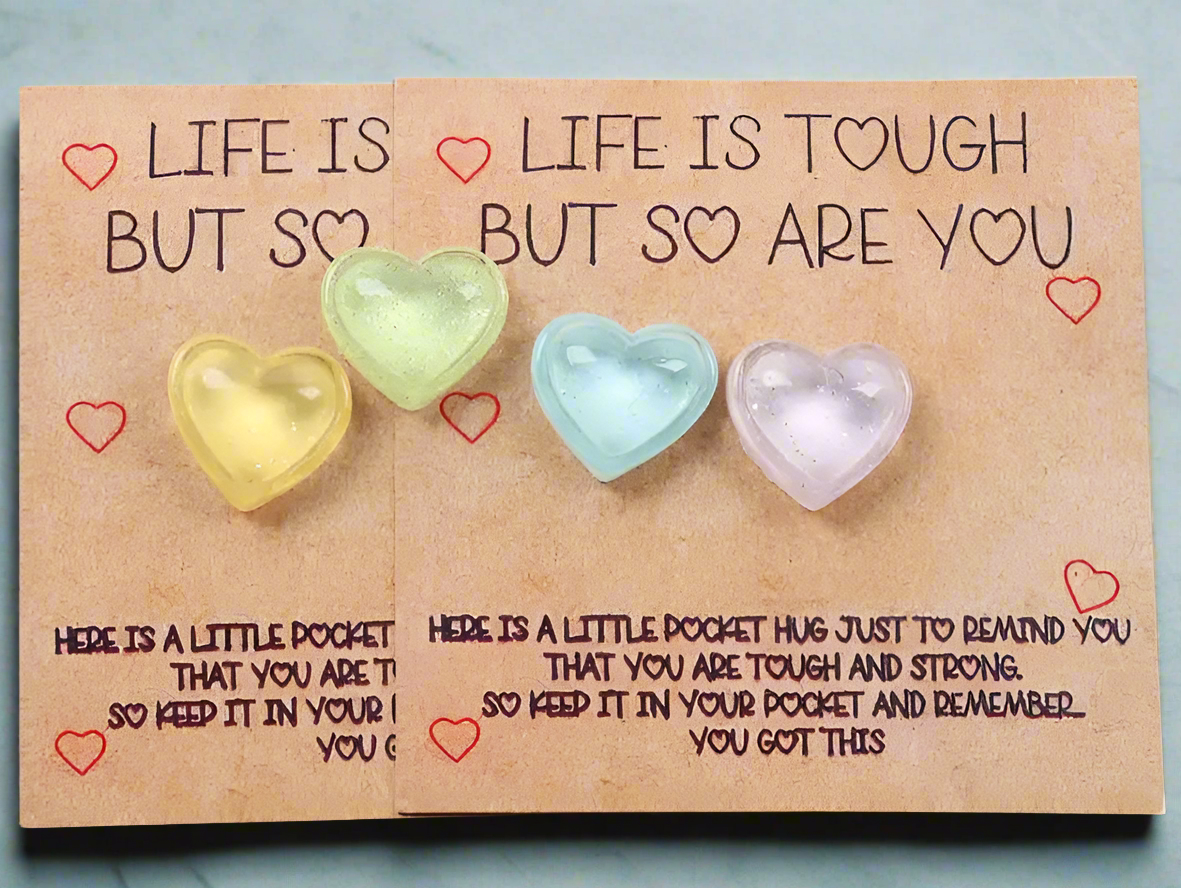 LIFE IS
BUT SO
HERE IS A LITTLE POCKET
THAT YOU ARE
SO KEEP IT IN YOUR
YOU
LIFE IS TOUGH
BUT SO ARE YOU
HERE IS A LITTLE POCKET HUG JUST TO REMIND YOU
THAT YOU ARE TOUGH AND STRONG.
SO KEEP IT IN YOUR POCKET AND REMEMBER...
YOU GOT THIS